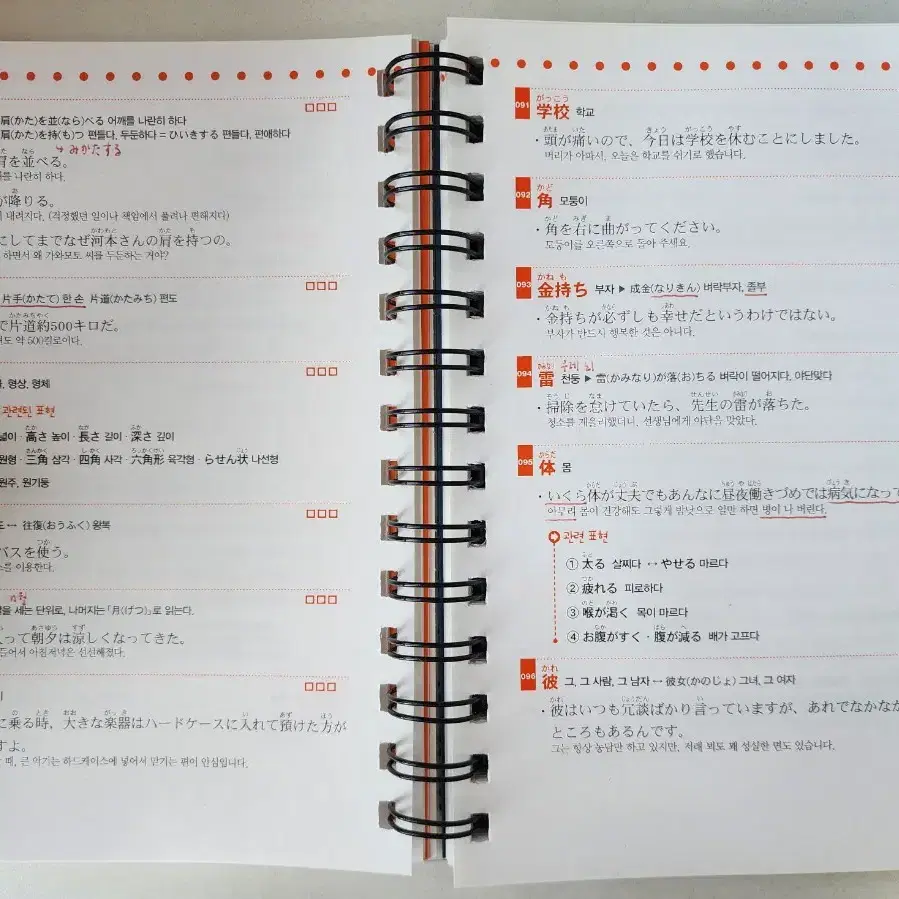 肩(かた)を並(なら)べる 어깨를 나란히 하다
肩(かた)を持(も)つ 편들다, 두둔하다 = ひいきする 편들다, 편애하다
↳ みかたする
肩を並べる。
를 나란히 하다.
が降りる。
내려지다. (걱정했던 일이나 책임에서 풀려나 편해지다)
にしてまでなぜ河本さんの肩を持つの。
하면서 왜 가와모토 씨를 두둔하는 거야?
片手(かたて) 한 손 片道(かたみち) 편도
で片道約500キロだ。
도 약 500킬로이다.
영상, 형체
관련된 표현
넓이 · 高さ 높이 · 長さ 길이 · 深さ 깊이
원형 · 三角 삼각 · 四角 사각 · 六角形 육각형 · らせん状 나선형
원주, 원기둥
↔ 往復(おうふく) 왕복
バスを使う。
를 이용한다.
을 세는 단위로, 나머지는 「月(げつ)」로 읽는다.
って朝夕は涼しくなってきた。
들어서 아침저녁은 선선해졌다.
に乗る時、大きな楽器はハードケースに入れて預けた方が
すよ。
때, 큰 악기는 하드케이스에 넣어서 맡기는 편이 안심입니다.
091 学校 학교
がっこう
· 頭が痛いので、今日は学校を休むことにしました。
머리가 아파서, 오늘은 학교를 쉬기로 했습니다.
092 角 모퉁이
かど
· 角を右に曲がってください。
모퉁이를 오른쪽으로 돌아 주세요.
093 金持ち 부자 ▶ 成金(なりきん) 벼락부자, 졸부
かねも
· 金持ちが必ずしも幸せだというわけではない。
부자가 반드시 행복한 것은 아니다.
094 雷 천둥 ▶ 雷(かみなり)が落(お)ちる 벼락이 떨어지다, 야단맞다
· 掃除を怠けていたら、先生の雷が落ちた。
청소를 게을리했더니, 선생님에게 야단을 맞았다.
095 体 몸
からだ
· いくら体が丈夫でもあんなに昼夜働きづめでは病気になって
아무리 몸이 건강해도 그렇게 밤낮으로 일만 하면 병이 나 버린다.
관련 표현
① 太る 살찌다 ↔ やせる 마르다
② 疲れる 피로하다
③ 喉が渇く 목이 마르다
④ お腹がすく · 腹が減る 배가 고프다
096 彼 그, 그 사람, 그 남자 ↔ 彼女(かのじょ) 그녀, 그 여자
かれ
· 彼はいつも冗談ばかり言っていますが、あれでなかなか
ところもあるんです。
그는 항상 농담만 하고 있지만, 저래 봬도 꽤 성실한 면도 있습니다.